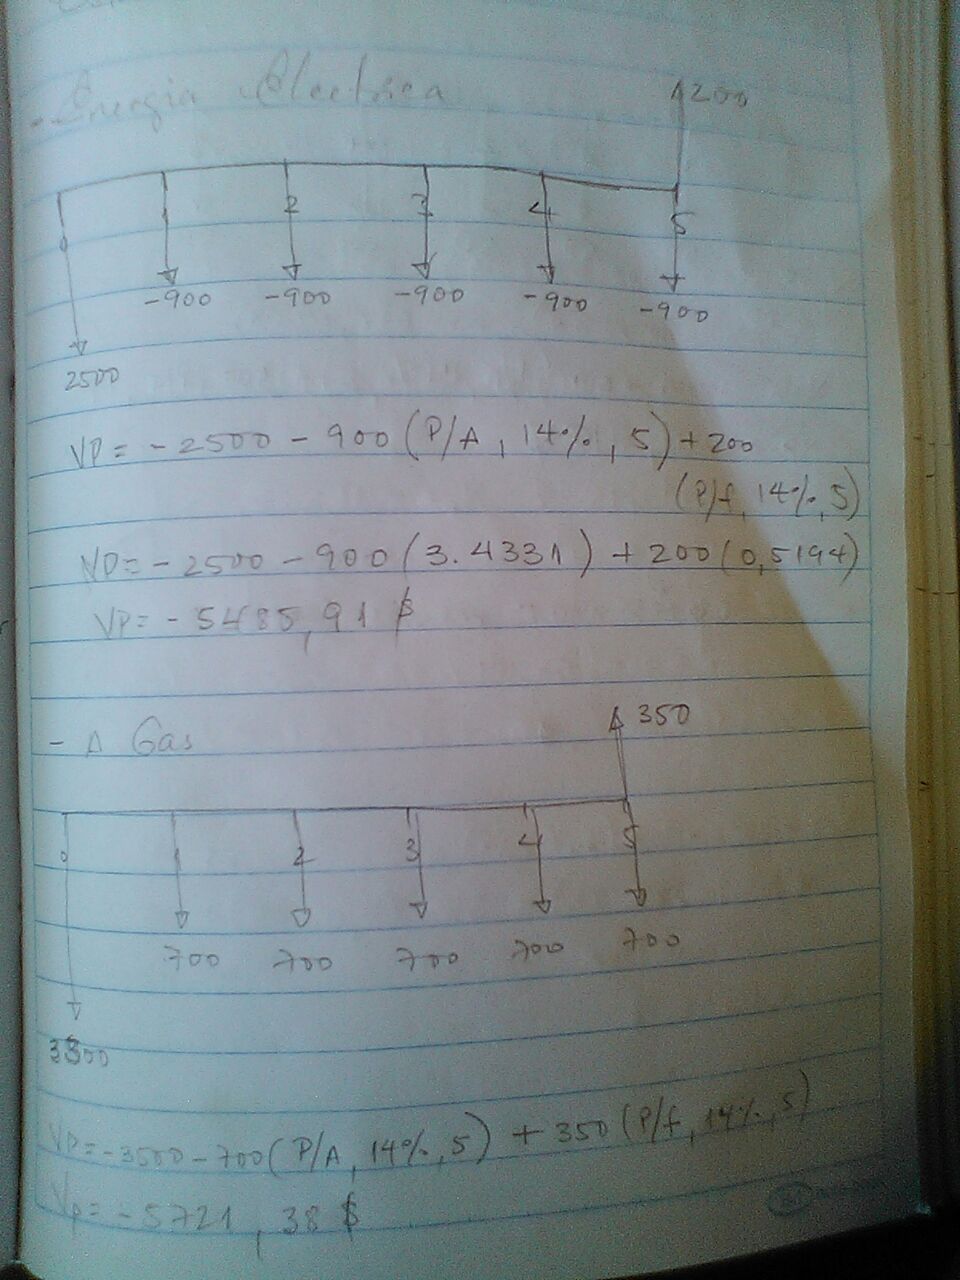 - Energia Electrica
200
0 1 2 3 4 5
-900 -900 -900 -900 -900
2500
VP = - 2500 - 900 (P/A, 14%, 5) + 200
(P/f, 14%, 5)
VP = - 2500 - 900 (3.4331) + 200 (0,5194)
VP = - 5485,91 $
- A Gas
350
0 1 2 3 4 5
700 700 700 700 700
VP = -3500 - 700 (P/A, 14%, 5) + 350 (P/f, 14%, 5)
Vp = -5721,38 $